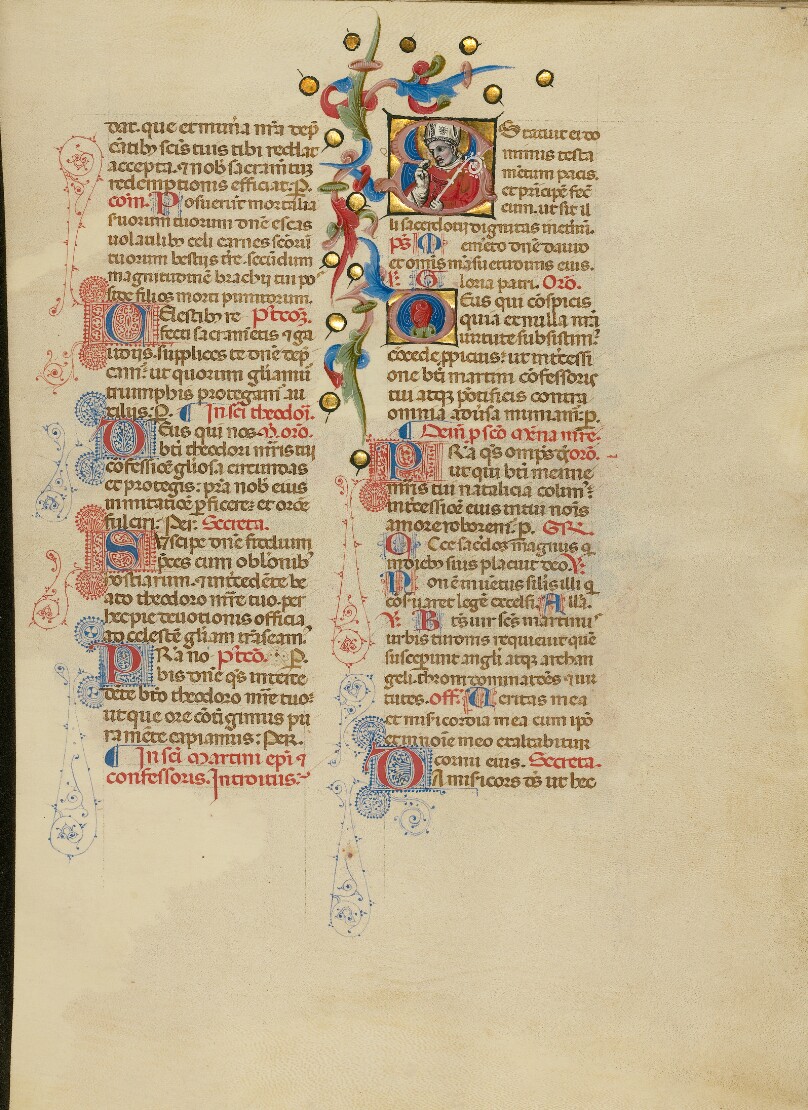 dat. que et munĩa nr̃a dep̃
cãtiby scĩs tuis tibi reddat
accepta. ⁊ nob̃ sacram̃tuȝ
redemptionis efficiat. P.
com̃. Posuerũt mortalia
suorum tuorum dñe escas
uolatiliby celi carnes sc̃oru
tuorum bestijs t̃re. secũdum
magnitudinẽ brachij tui po
side filios morti punitorum.
Celestiby re P̾tcoȝ.
fecti sacram̃tis ⁊ ga
udijs. supplices te dñe dep̃
cam̃. ut quorum gl̃iamu
triumphis protegam̃ au
xilijs. P. In sc̃i theodoi.
Deus qui nos orõ.
bt̃i theodori m̃ris tui
cofessiõe gl̃iosa circundas
et protegis: p̃ra nob̃ eius
imitatiõe p̱ficere: et oroẽ
fulciri. Per. Secreta.
Suscipe dñe fidelium
p̃ces cum oblõnib̾
hostiarum. ⁊ intedẽte be
ato theodoro m̃re tuo. per
hec pie deuotionis officia
ad celestẽ gl̃iam trãseam̃.
Pra no P̾tcõ. P.
bis dñe q̃s intede
dẽte bt̃o theodoro m̃re tuo:
ut que ore cõtigimus pu
ra mẽte capiamus: Per.
In sc̃i Martini ep̃i ⁊
confessoris. Introitus.
Statuit ei do
minus testa
m̃tum pacis.
et p̃ncipẽ fec̃
eum. ut sit il
li sacerdotij dignitas in et̃ni.
ps̃ Memẽto dñe dauid
et om̃is mãsuetudinis eius.
Gloria patri. Orõ.
Deus qui cõspicis
quia ex nulla nr̃a
uirtute subsistim̃:
cõcede p̱picius: ut int̃cessi
one bt̃i martini cõfessoris
tui atq̱ põtificis contra
omnia adũsa muniam̃. p.
Oem̃ p sc̃o mẽna m̃re.
Pra q̃s omp̃s d̃s orõ.
ut qui bt̃i menne
m̃ris tui natalicia colim̃:
int̃cessiõe eius in tui noĩs
amore roborem̃. p. GR.
Ecce sac̃dos magnus q
in dieb̾ suis placuit deo. ℣.
Non ẽ inuẽtus sil̃is illi q
cõs̃uaret legẽ excelsi. All̃a.
℣. Bt̃s uir sc̃s martinu
urbis turonis requieuit quẽ
susceperunt angl̃i atq̱ archan
geli. throni dominatões ⁊ uir
tutes. off. Ueritas mea
et mis̃icordia mea cum ip̃o
et in noĩe meo exaltabitur
cornu eius. Secreta.
Da misicors d̃s ut hec